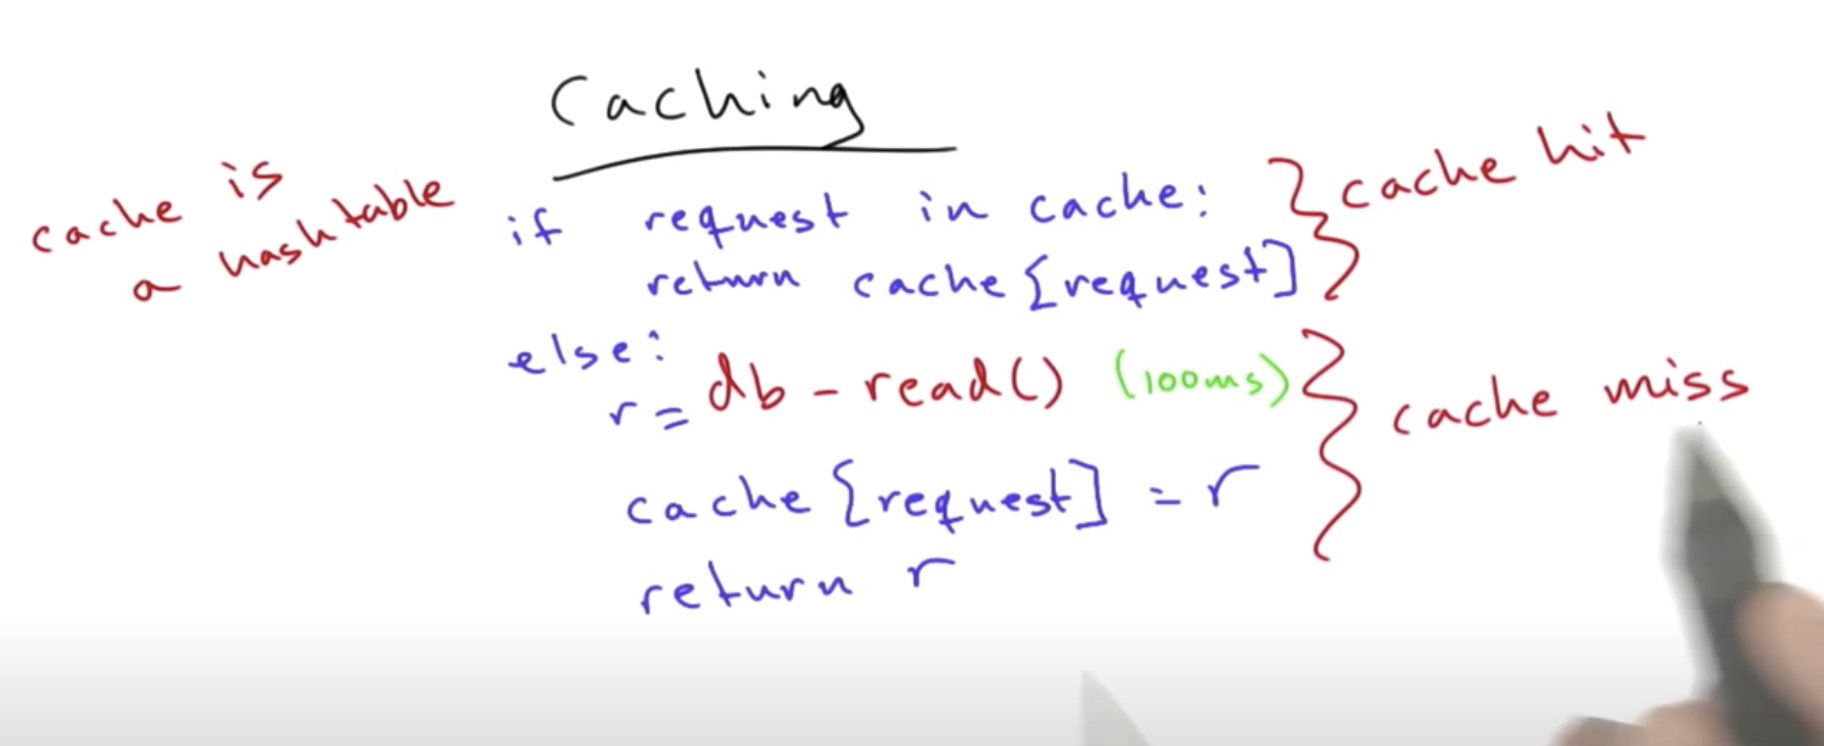 Caching
cache is
a hashtable
if request in cache:
return cache [request]
cache hit
else:
r = db - read() (100ms)
cache [request] = r
return r
cache miss